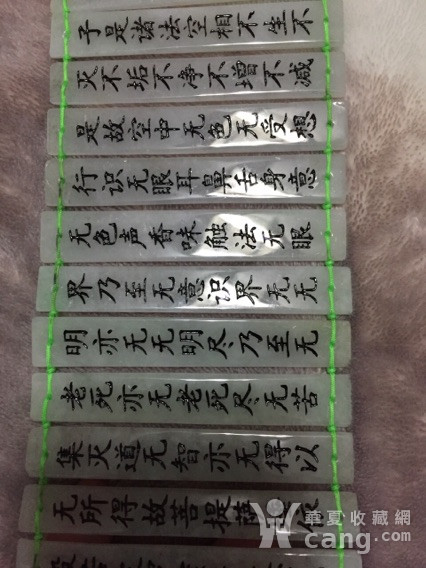 子是诸法空相不生不
灭不垢不净不增不减
是故空中无色无受想
行识无眼耳鼻舌身意
无色声香味触法无眼
界乃至无意识界无无
明亦无无明尽乃至无
老死亦无老死尽无苦
集灭道无智亦无得以
无所得故菩提萨
華夏收藏網
cang.com